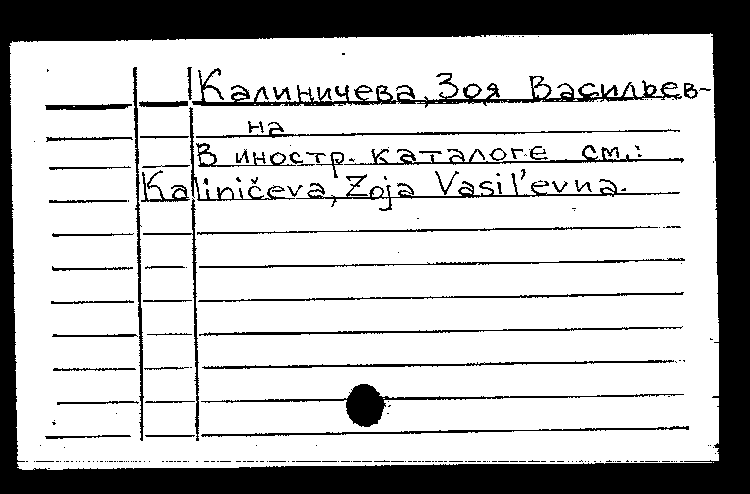 Калиничева, Зоя Васильев-
на
В иностр. каталоге см.:
Kaliničeva, Zoja Vasil'evna.